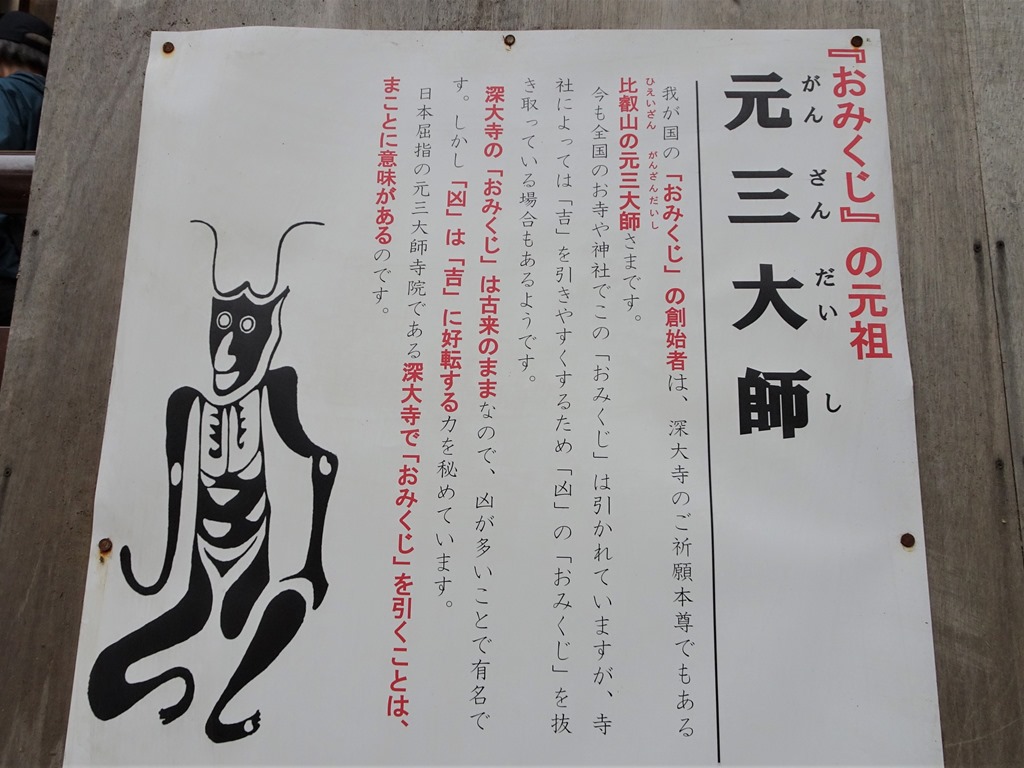 『おみくじ』の元祖
がん ざん だい し
元三大師
我が国の「おみくじ」の創始者は、深大寺のご祈願本尊でもある
ひえいざん がんざんだいし
比叡山の元三大師さまです。
今も全国のお寺や神社でこの「おみくじ」は引かれていますが、寺
社によっては「吉」を引きやすくするため「凶」の「おみくじ」を抜
き取っている場合もあるようです。
深大寺の「おみくじ」は古来のままなので、凶が多いことで有名で
す。しかし「凶」は「吉」に好転する力を秘めています。
日本屈指の元三大師寺院である深大寺で「おみくじ」を引くことは、
まことに意味があるのです。